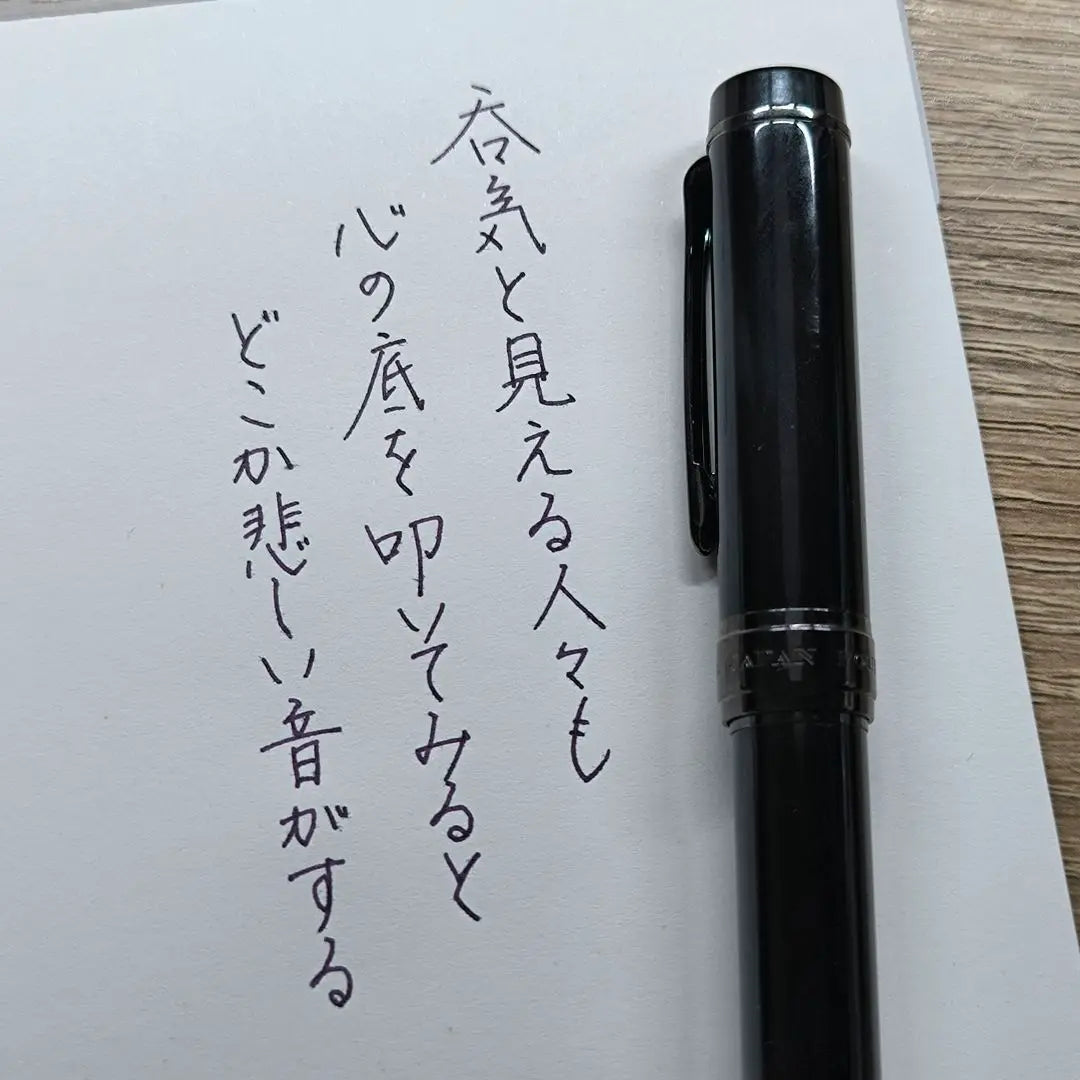 呑気と見える人々も
心の底を叩いてみると
どこか悲しい音がする
JAPAN